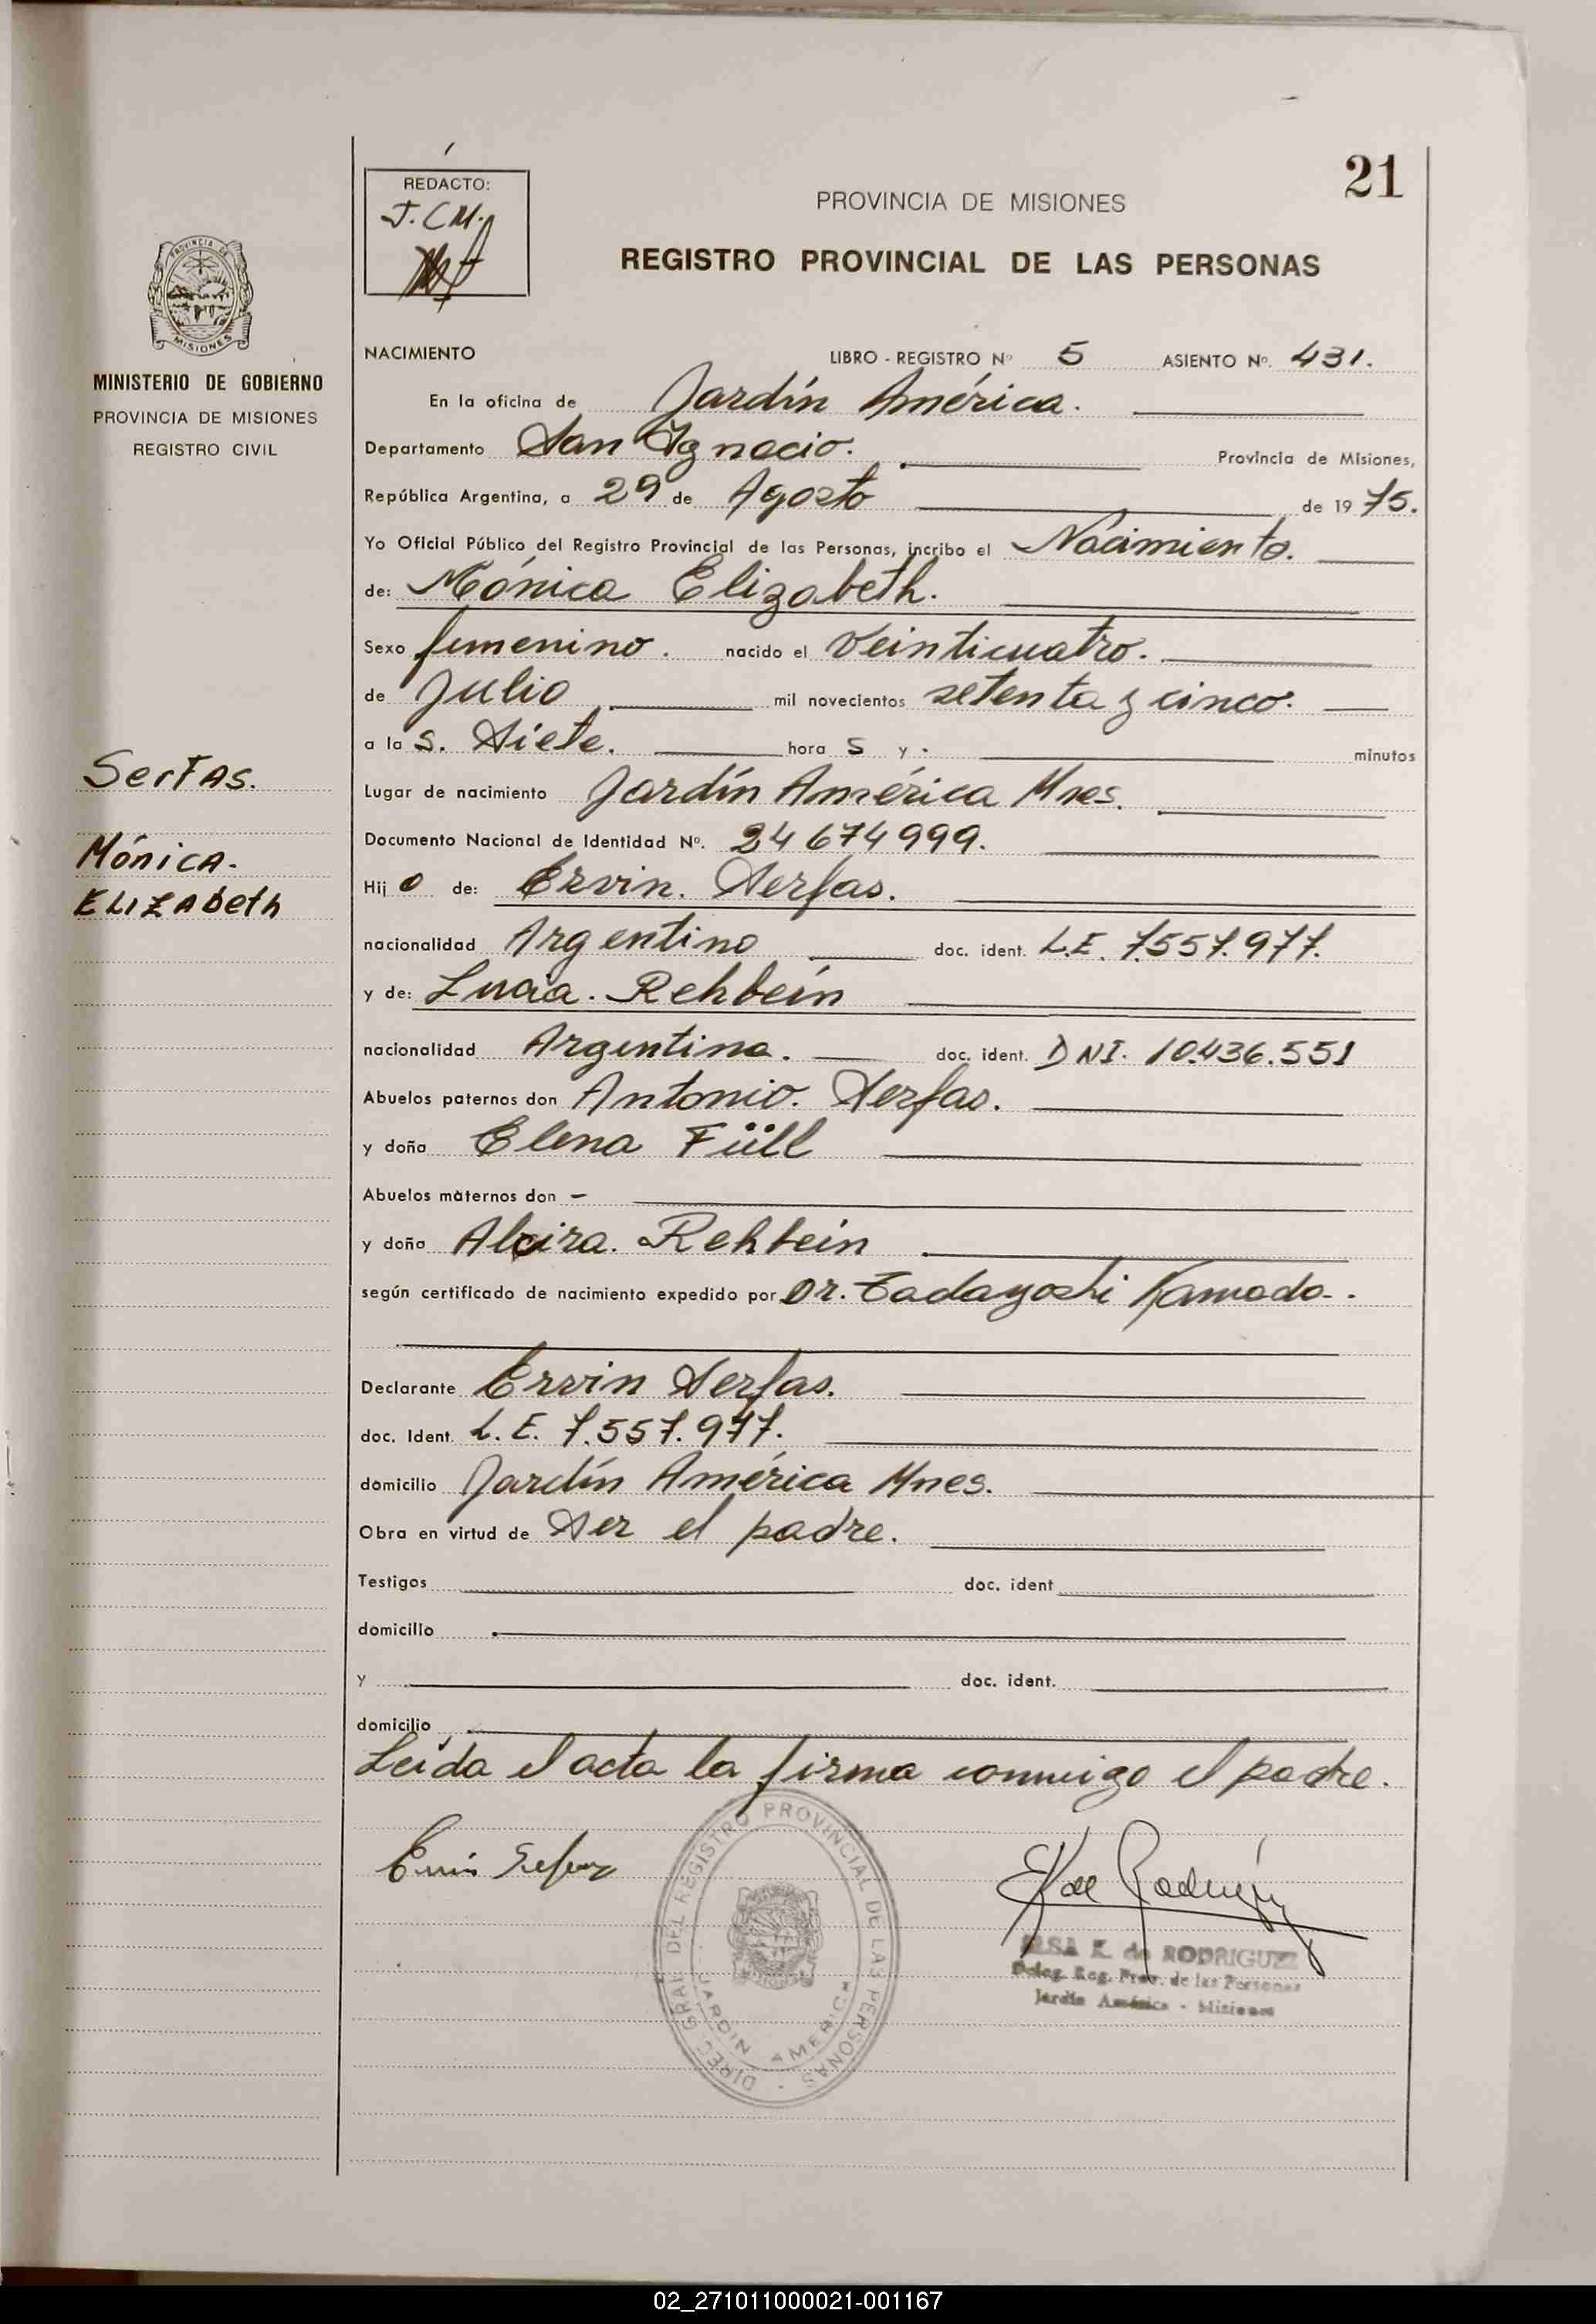 21
REDACTO:
J. C M.
PROVINCIA DE MISIONES
REGISTRO PROVINCIAL DE LAS PERSONAS
PROVINCIA DE
MISIONES
MINISTERIO DE GOBIERNO
PROVINCIA DE MISIONES
REGISTRO CIVIL
NACIMIENTO LIBRO - REGISTRO Nº 5 ASIENTO Nº. 431.
En la oficina de Jardín América.
Departamento San Ignacio. Provincia de Misiones,
República Argentina, a 29 de Agosto de 1975.
Yo Oficial Público del Registro Provincial de las Personas, incribo el Nacimiento.
de: Mónica Elizabeth.
Sexo femenino. nacido el Veinticuatro.
de Julio mil novecientos setenta y cinco.
a la s. Siete. hora s y . minutos
Serfas.
Lugar de nacimiento Jardín América Mnes.
Mónica.
Documento Nacional de Identidad Nº. 24 674 999.
Elizabeth
Hij o de: Ervin. Serfas.
nacionalidad Argentino doc. ident. L.E. 7.557.977.
y de: Lucia. Rehbein
nacionalidad Argentina. doc. ident. DNI. 10.436.551
Abuelos paternos don Antonio. Serfas.
y doña Elena Füll
Abuelos maternos don -
y doña Alcira. Rehbein
según certificado de nacimiento expedido por Dr. Tadayoshi Kamada.
Declarante Ervin Serfas.
doc. Ident. L. E. 7.557.977.
domicilio Jardín América Mnes.
Obra en virtud de Ser el padre.
Testigos doc. ident
domicilio
y doc. ident.
domicilio
Leída el acta la firma conmigo el padre.
DIREC GRAL DEL REGISTRO PROVINCIAL DE LAS PERSONAS
JARDIN AMERICA
ELSA K. de RODRIGUEZ
Deleg. Reg. Prov. de las Personas
Jardín América - Misiones
02_271011000021-001167